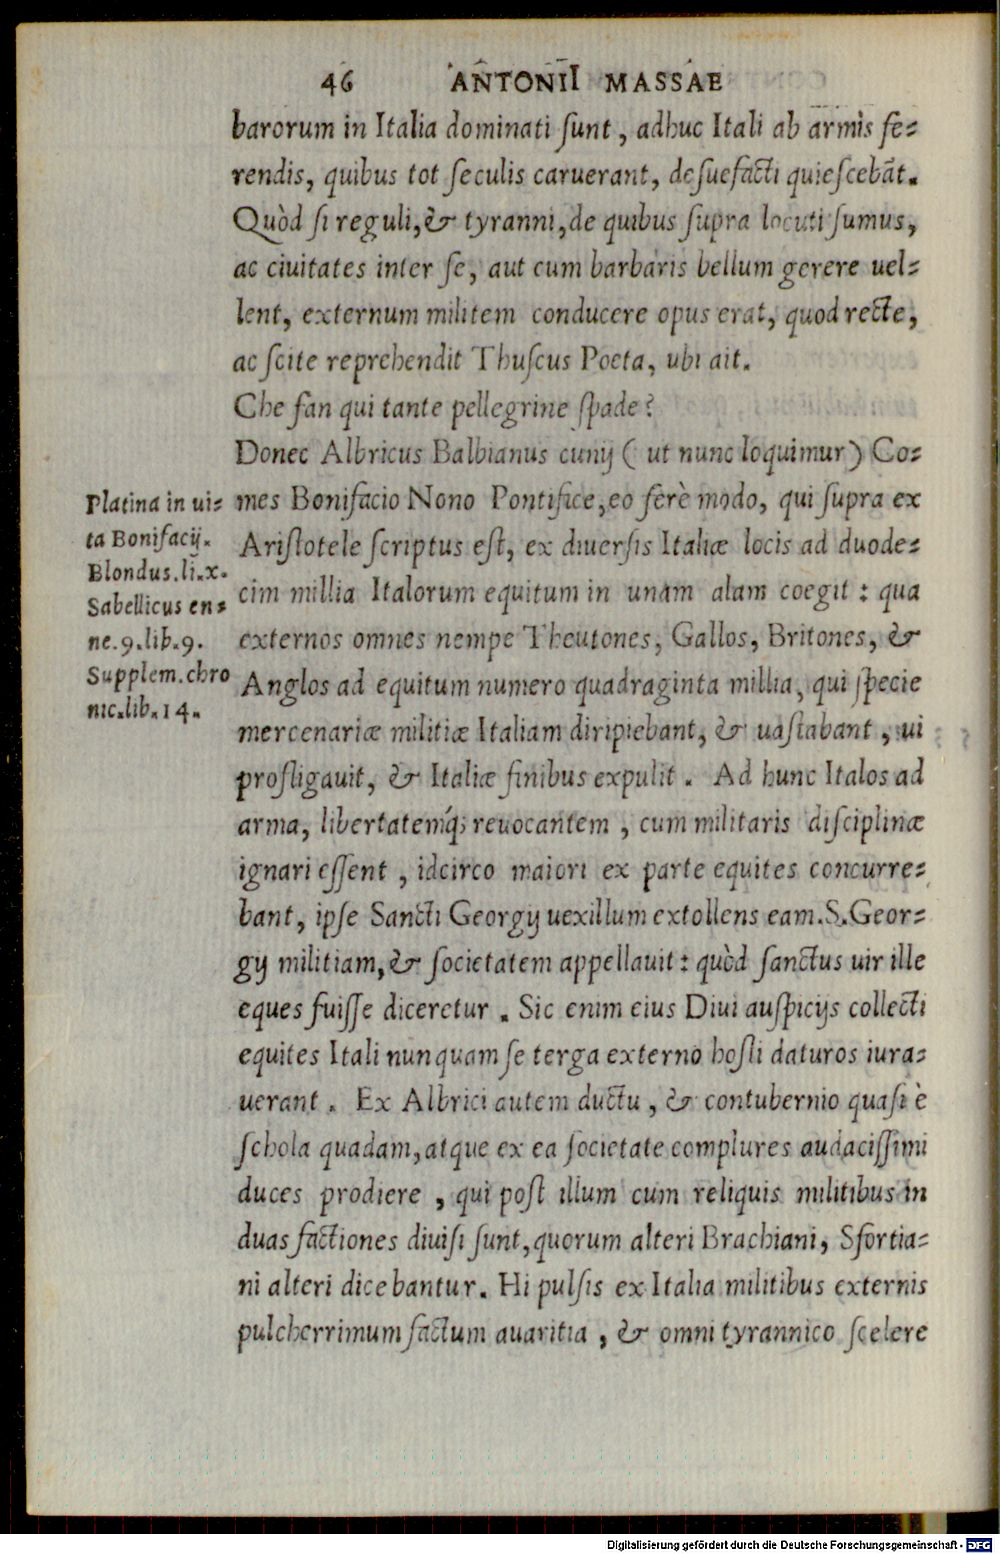 46 ANTONII MASSAE
barorum in Italia dominati sunt, adhuc Itali ab armis fe=
rendis, quibus tot seculis caruerant, desuefacti quiescebãt.
Quòd si reguli, & tyranni, de quibus supra locuti sumus,
ac ciuitates inter se, aut cum barbaris bellum gerere uel=
lent, externum militem conducere opus erat, quod recte,
ac scite reprehendit Thuscus Poeta, ubi ait.
Che fan qui tante pellegrine spade?
Donec Albricus Balbianus cunij ( ut nunc loquimur ) Co=
mes Bonifacio Nono Pontifice, eo ferè modo, qui supra ex
Aristotele scriptus est, ex diuersis Italiæ locis ad duode=
cim millia Italorum equitum in unam alam coegit : qua
externos omnes nempe Theutones, Gallos, Britones, &
Anglos ad equitum numero quadraginta millia, qui specie
mercenariæ militiæ Italiam diripiebant, & uastabant, ui
profligauit, & Italiæ finibus expulit. Ad hunc Italos ad
arma, libertatemq́; reuocantem, cum militaris disciplinæ
ignari essent, idcirco maiori ex parte equites concurre=
bant, ipse Sancti Georgij uexillum extollens eam. S. Geor=
gij militiam, & societatem appellauit : quòd sanctus uir ille
eques fuisse diceretur. Sic enim eius Diui auspicijs collecti
equites Itali nunquam se terga externo hosti daturos iura=
uerant. Ex Albrici autem ductu, & contubernio quasi è
schola quadam, atque ex ea societate complures audacissimi
duces prodiere, qui post illum cum reliquis militibus in
duas factiones diuisi sunt, quorum alteri Brachiani, Sfortia=
ni alteri dicebantur. Hi pulsis ex Italia militibus externis
pulcherrimum factum auaritia, & omni tyrannico scelere
Platina in ui=
ta Bonifacij.
Blondus. li. x.
Sabellicus en=
ne. 9. lib. 9.
Supplem. chro
nic. lib. 14.
Digitalisierung gefördert durch die Deutsche Forschungsgemeinschaft - DFG